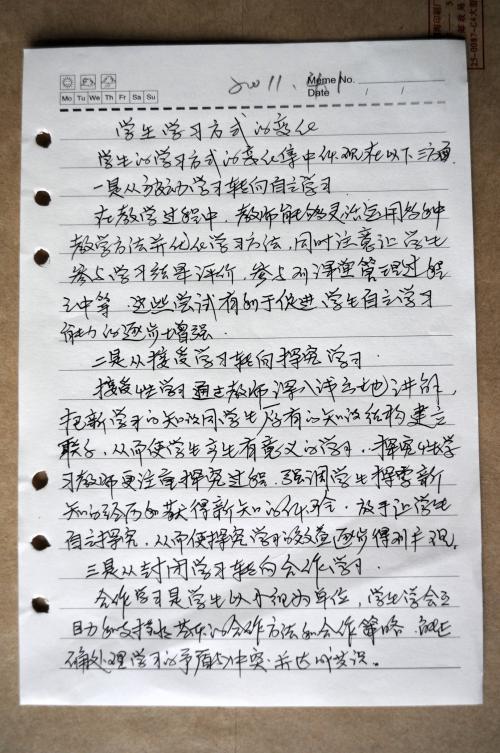 Memo No.
Mo Tu We Th Fr Sa Su
Date / /
学生学习方式的变化
学生的学习方式的变化集中体现在以下三方面
一是从被动学习转向自主学习.
在教学过程中，教师能够灵活运用各种
教学方法并优化学习方法，同时注意让学生
参与学习结果评价，参与对课堂管理过程
之中等.这些尝试有利于促进学生自主学习
能力的逐步增强.
二是从接受学习转向探究学习.
接受性学习通过教师深入浅出地讲解，
把新学习的知识同学生原有的知识结构建立
联系，从而使学生产生有意义的学习.探究性学
习教师更注重探究过程.强调学生探索新
知的经历和获得新知的体会.放手让学生
自主探究，从而使探究学习的效益逐步得到丰观.
三是从封闭学习转向合作学习.
合作学习是学生以小组为单位，学生学会互
助和支持共存的合作方法和合作策略.能正
确处理学习的矛盾与冲突.并达成共识。